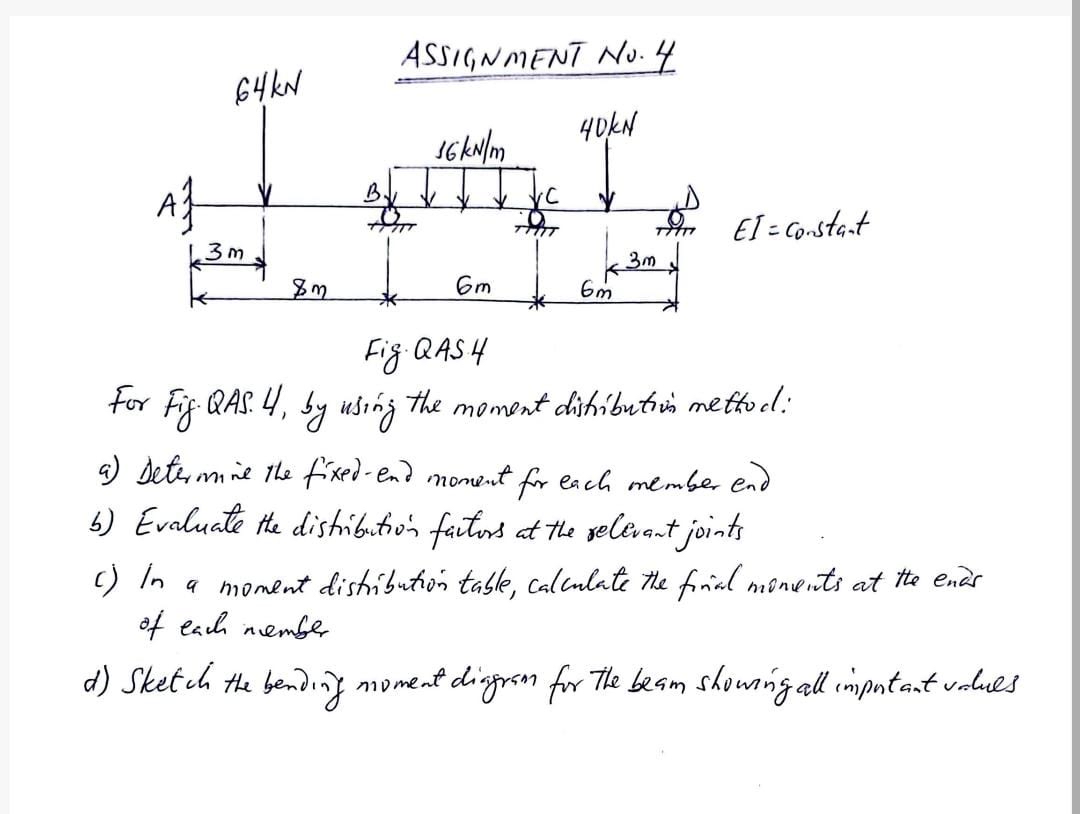 ASSIGNMENT No. 4
64kN
40kN
16kN/m
A
B
C
D
EI = Constant
3m
3m
8m
6m
6m
Fig. QAS 4
For Fig. QAS. 4, by using the moment distribution method:
a) Determine the fixed-end moment for each member end
b) Evaluate the distribution factors at the relevant joints
c) In a moment distribution table, calculate the final moments at the ends
of each member
d) Sketch the bending moment diagram for the beam showing all important values